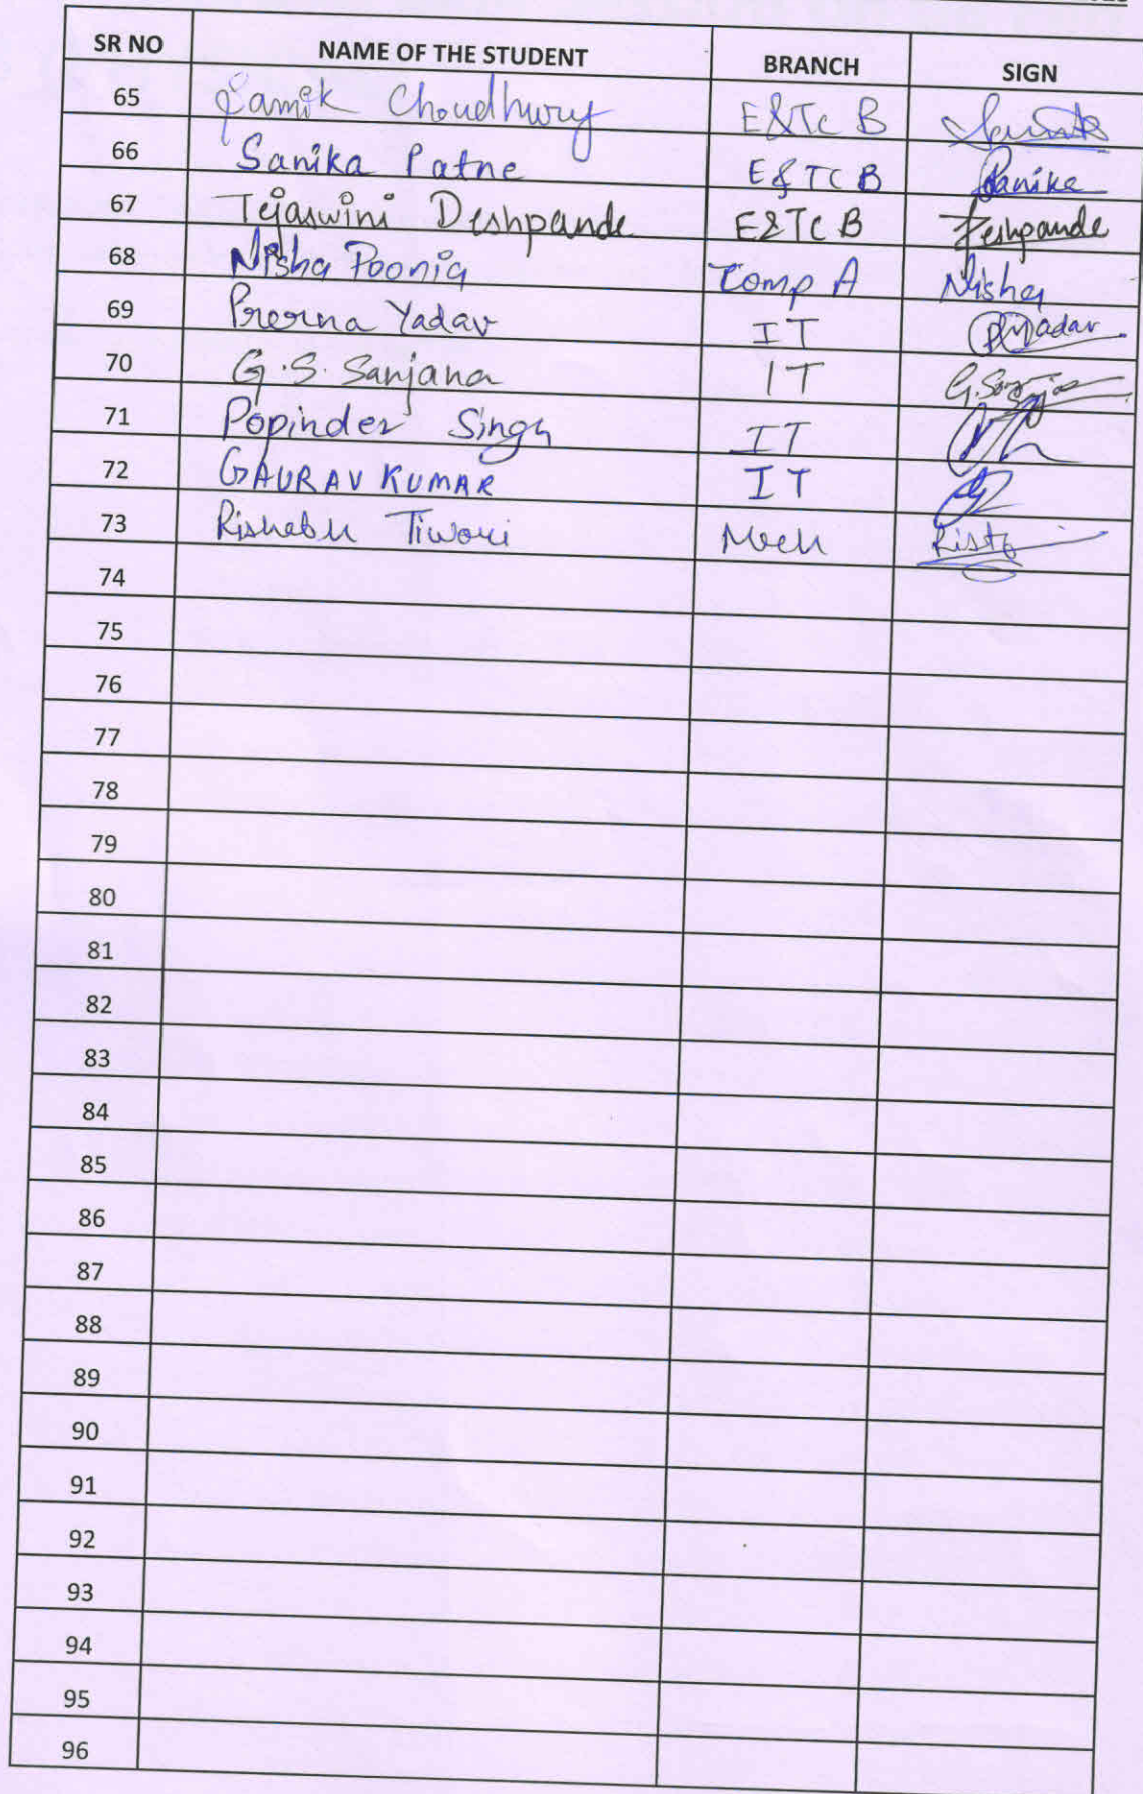 SR NO NAME OF THE STUDENT BRANCH SIGN
65 Samik Choudhury E&Tc B
66 Sanika Patne E&TC B Sanika
67 Tejaswini Deshpande E&TC B Deshpande
68 Nisha Poonia Comp A Nisha
69 Prerna Yadav IT PYadav
70 G.S. Sanjana IT
71 Popinder Singh IT
72 GAURAV KUMAR IT
73 Rishabh Tiwari Mech
74
75
76
77
78
79
80
81
82
83
84
85
86
87
88
89
90
91
92
93
94
95
96